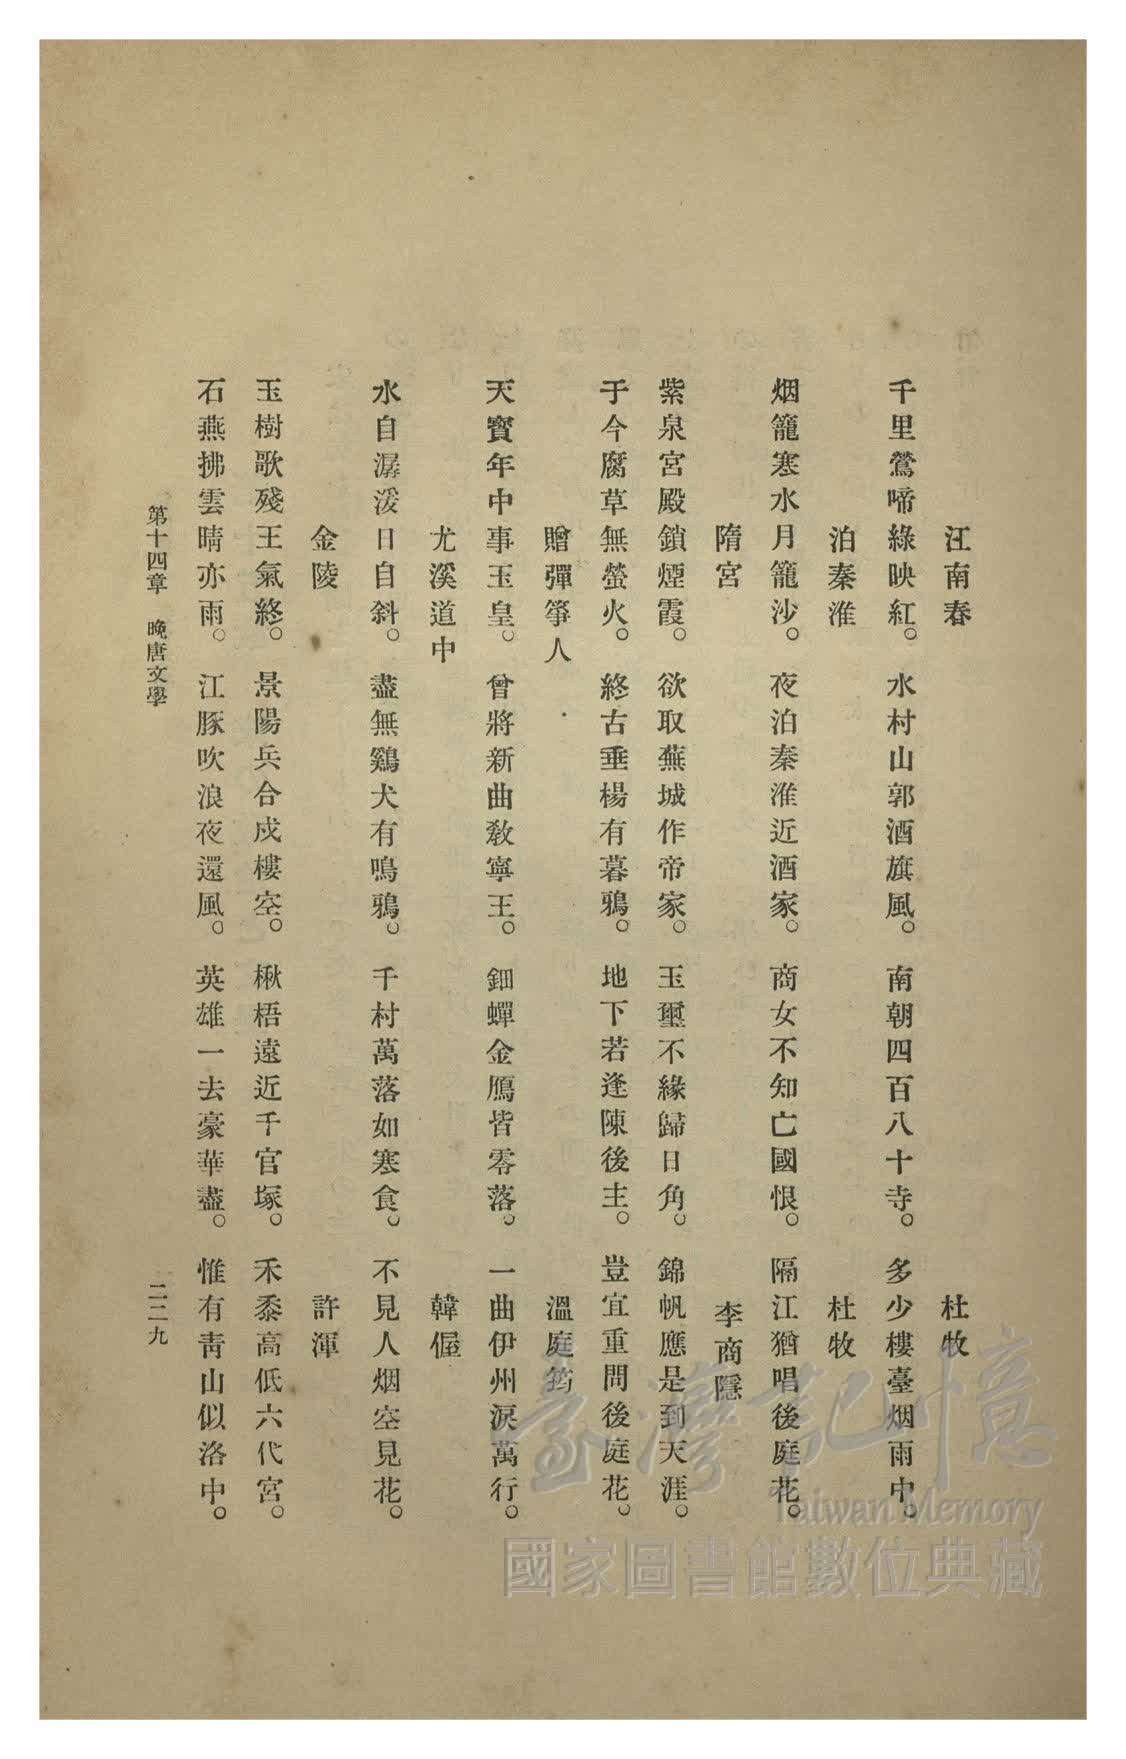 江南春　杜牧
千里鶯啼綠映紅。水村山郭酒旗風。南朝四百八十寺。多少樓臺烟雨中。
泊秦淮　杜牧
烟籠寒水月籠沙。夜泊秦淮近酒家。商女不知亡國恨。隔江猶唱後庭花。
隋宮　李商隱
紫泉宮殿鎖煙霞。欲取蕪城作帝家。玉璽不緣歸日角。錦帆應是到天涯。
于今腐草無螢火。終古垂楊有暮鴉。地下若逢陳後主。豈宜重問後庭花。
贈彈箏人　溫庭筠
天寶年中事玉皇。曾將新曲教寧王。鈿蟬金鴈皆零落。一曲伊州淚萬行。
尤溪道中　韓偓
水自潺湲日自斜。盡無鷄犬有鳴鴉。千村萬落如寒食。不見人烟空見花。
金陵　許渾
玉樹歌殘王氣終。景陽兵合戍樓空。楸梧遠近千官塚。禾黍高低六代宮。
石燕拂雲晴亦雨。江豚吹浪夜還風。英雄一去豪華盡。惟有靑山似洛中。
第十四章　晚唐文學　二二九
臺灣記憶
Taiwan Memory
國家圖書館數位典藏